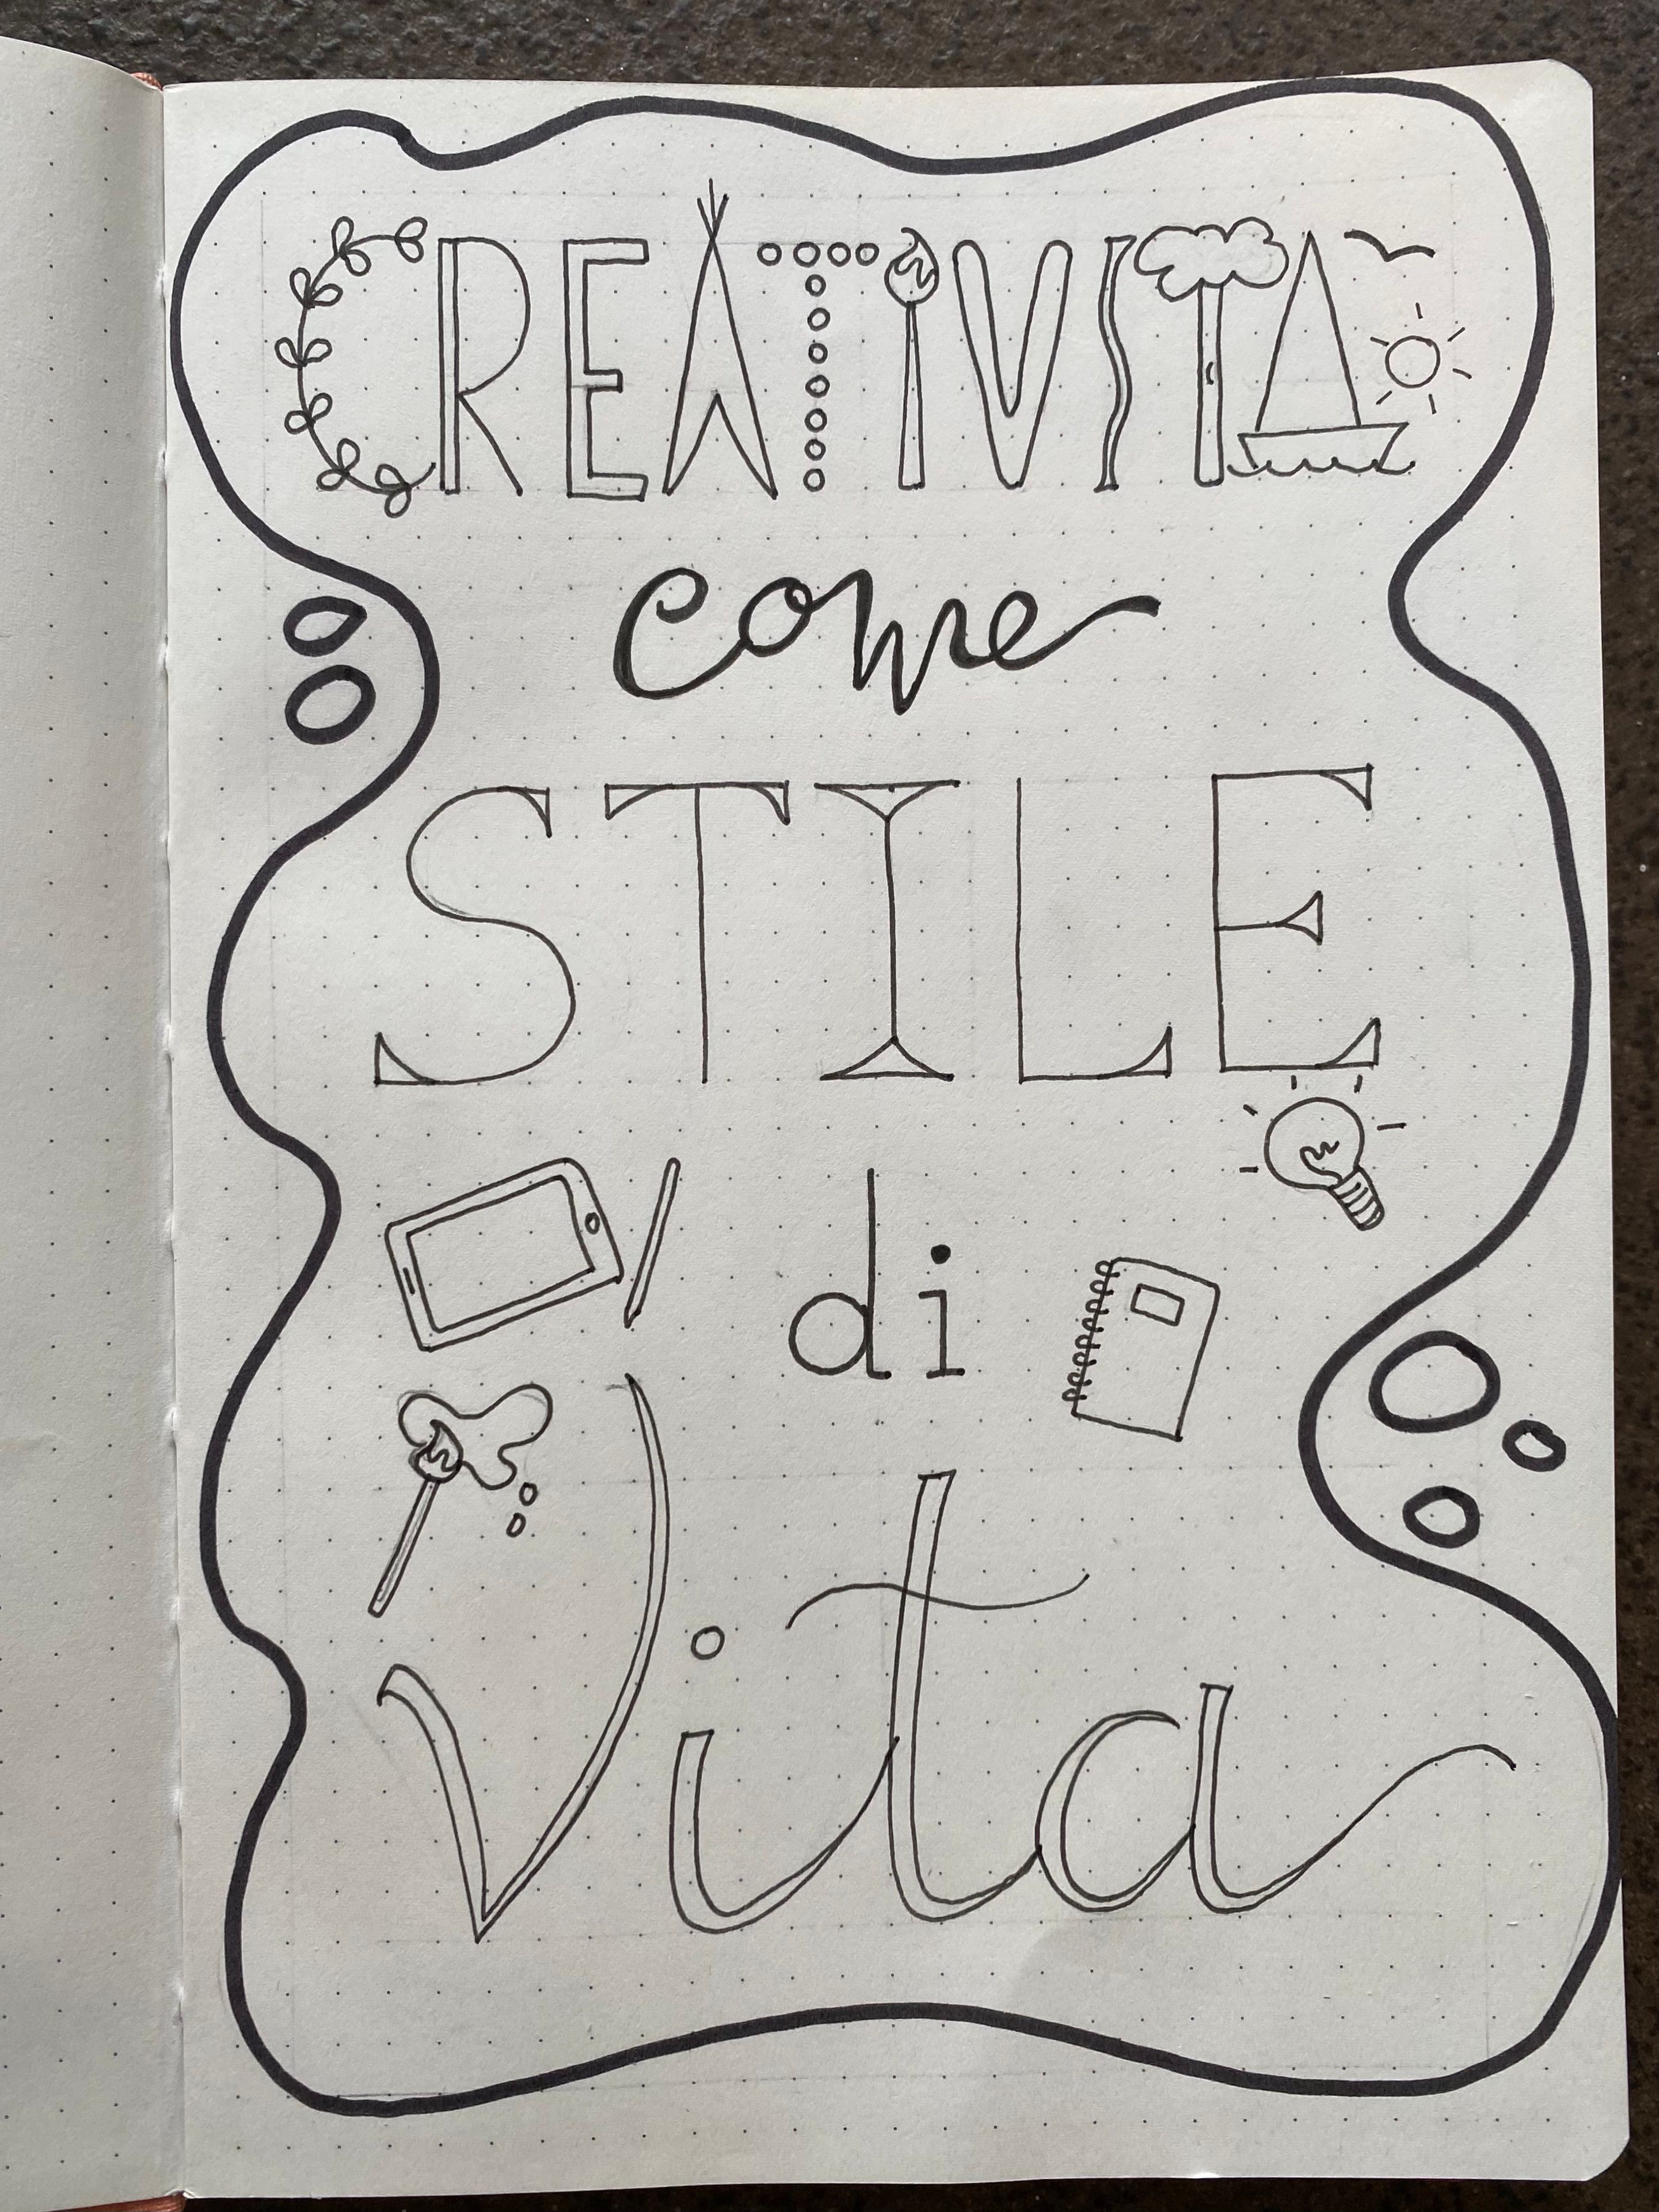 CREATIVITA
come
STILE
di
Vita